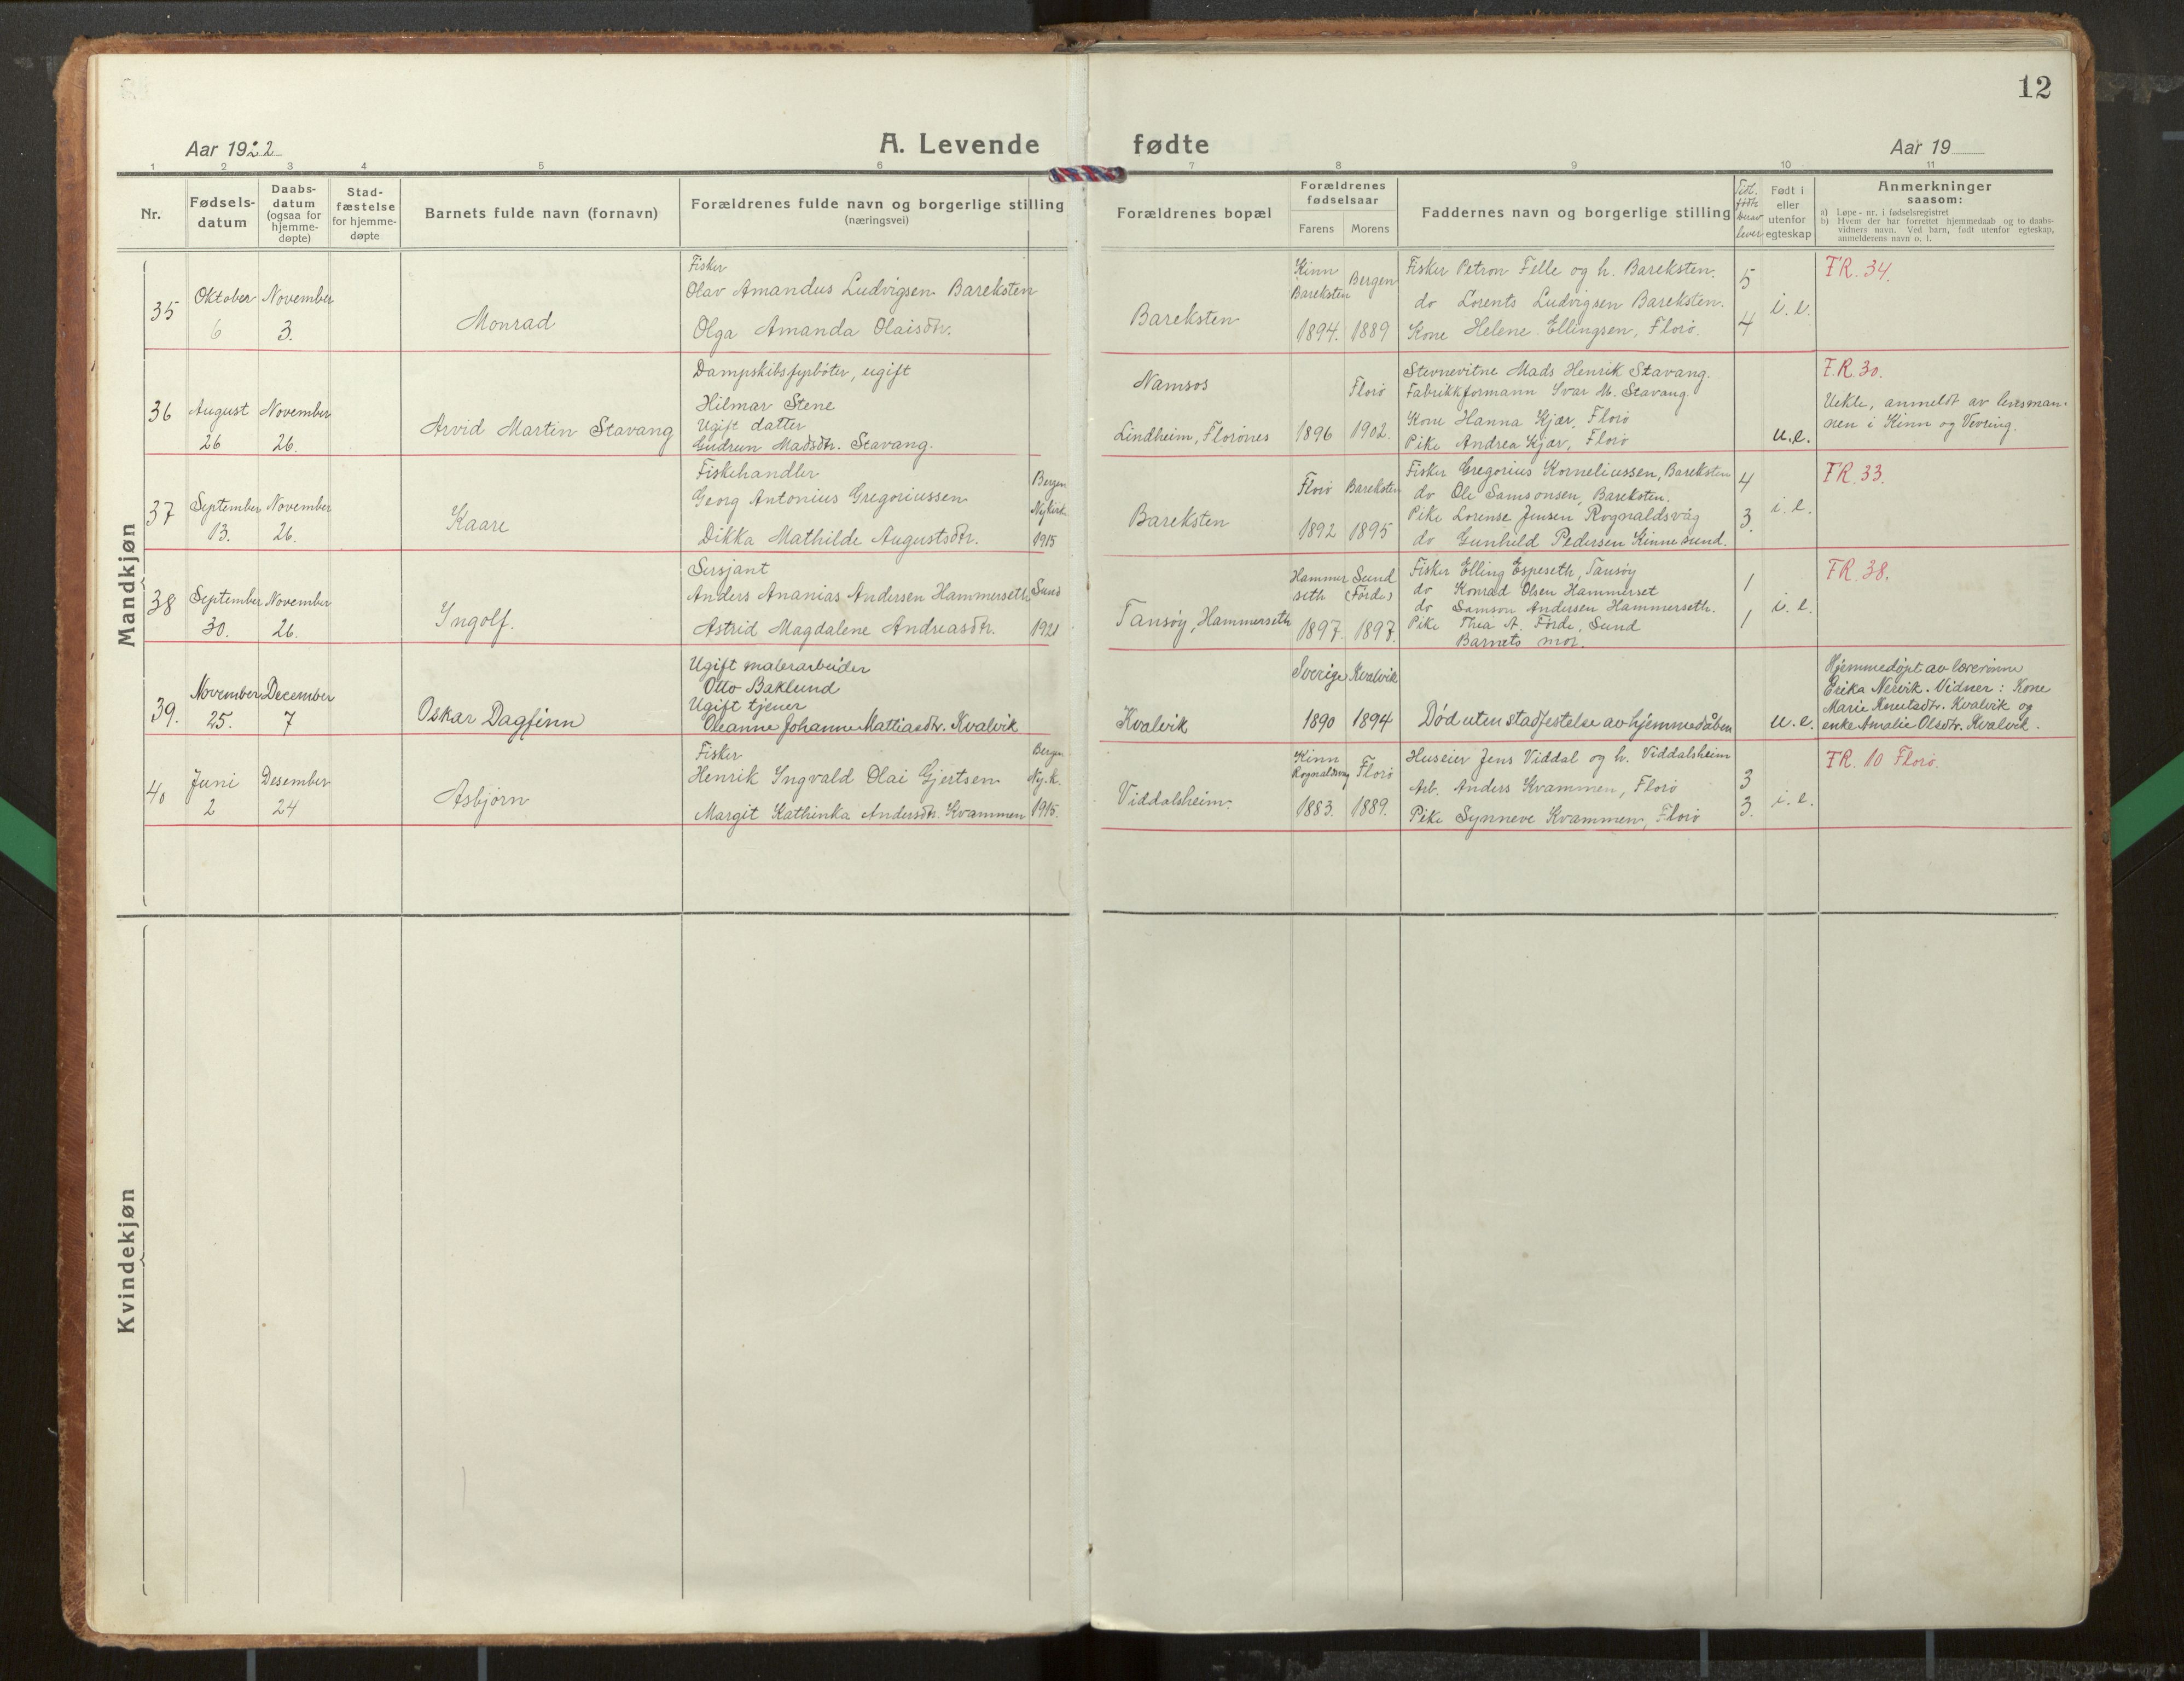 12
Aar 1922
A. Levende fødte
Aar 19
1 2 3 4 5 6 7 8 9 10 11
Nr.
Fødsels-
datum
Daabs-
datum
(ogsaa for
hjemme-
døpte)
Stad-
fæstelse
for hjemme-
døpte
Barnets fulde navn (fornavn)
Forældrenes fulde navn og borgerlige stilling
(næringsvei)
Forældrenes bopæl
Forældrenes
fødselsaar
Farens
Morens
Faddernes navn og borgerlige stilling
Tidl.
fødte
herav
lever
Født i
eller
utenfor
egteskap
Anmerkninger
saasom:
a) Løpe-nr. i fødselsregistret
b) Hvem der har forrettet hjemmedaab og to daabs-
vidners navn. Ved barn, født utenfor egteskap,
anmelderens navn o. l.
Mandkjøn
35
Oktober
6
November
3.
Monrad
Fisker
Olav Amandus Ludvigsen Bareksten
Olga Amanda Olaisdtr.
Bareksten
Kinn
Bareksten
1894.
Bergen
1889
Fisker Petron Felle og h. Bareksten.
do Lorents Ludvigsen Bareksten.
Kone Helene Ellingsen, Florø.
5
4
i. e.
FR. 34.
36
August
26
November
26.
Arvid Martin Stavang
Dampskibsfyrbøter, ugift
Hilmar Stene
Ugift datter
Gudrun Madsdtr. Stavang.
Namsos
Lindheim, Florønes
1896
Florø
1902.
Stevnevitne Mads Henrik Stavang.
Fabrikkformann Ivar M. Stavang.
Kone Hanna Kjær, Florø
Pike Andrea Kjær, Florø
u. e.
FR. 30.
Uekte, anmeldt av lensman-
nen i Kinn og Vevring.
37
September
13.
November
26.
Kaare
Fiskehandler
Georg Antonius Gregoriussen
Dikka Mathilde Augustsdtr.
Bergen
Nykirk
1915
Bareksten
Florø
1892
Bareksten
1895
Fisker Gregorius Korneliussen, Bareksten
do Ole Samsonsen, Bareksten.
Pike Lorense Jensen Rognaldsvåg
do Gunhild Pedersen Kinnesund.
4
3.
i. e.
FR. 33.
38
September
30.
November
26.
Ingolf.
Sersjant
Anders Ananias Andersen Hammerseth
Astrid Magdalene Andreasdtr.
Sund
1921
Tansøy, Hammerseth
Hammer
seth
1897
Sund
(Førde)
1897.
Fisker Elling Espeseth, Tansøy
do Konrad Olsen Hammerset
do Samson Andersen Hammerseth.
Pike Thea A. Førde, Sund
Barnets mor.
1
1
i. e.
FR. 38.
39.
November
25.
December
7
Oskar Dagfinn
Ugift malerarbeider
Otto Baklund
Ugift tjener
Oleanne Johanne Mattiasdtr. Kvalvik
Kvalvik
Sverige
1890
Kvalvik
1894
Død uten stadfestelse av hjemmedåben
u. e.
Hjemmedøpt av lærerinne
Erika Nervik. Vidner: Kone
Marie Knutsdtr. Kvalvik og
enke Amalie Olsdtr. Kvalvik.
40
Juni
2
Desember
24
Asbjørn
Fisker
Henrik Ingvald Olai Gjertsen
Margit Kathinka Andersdtr. Kvammen
Bergen
Ny.k.
1915.
Viddalsheim.
Kinn
Rognaldsvåg
1883.
Florø
1889.
Huseier Jens Viddal og h. Viddalsheim
Arb. Anders Kvammen, Florø
Pike Synneve Kvammen, Florø
3
3.
i. e.
FR. 10 Florø.
Kvindekjøn